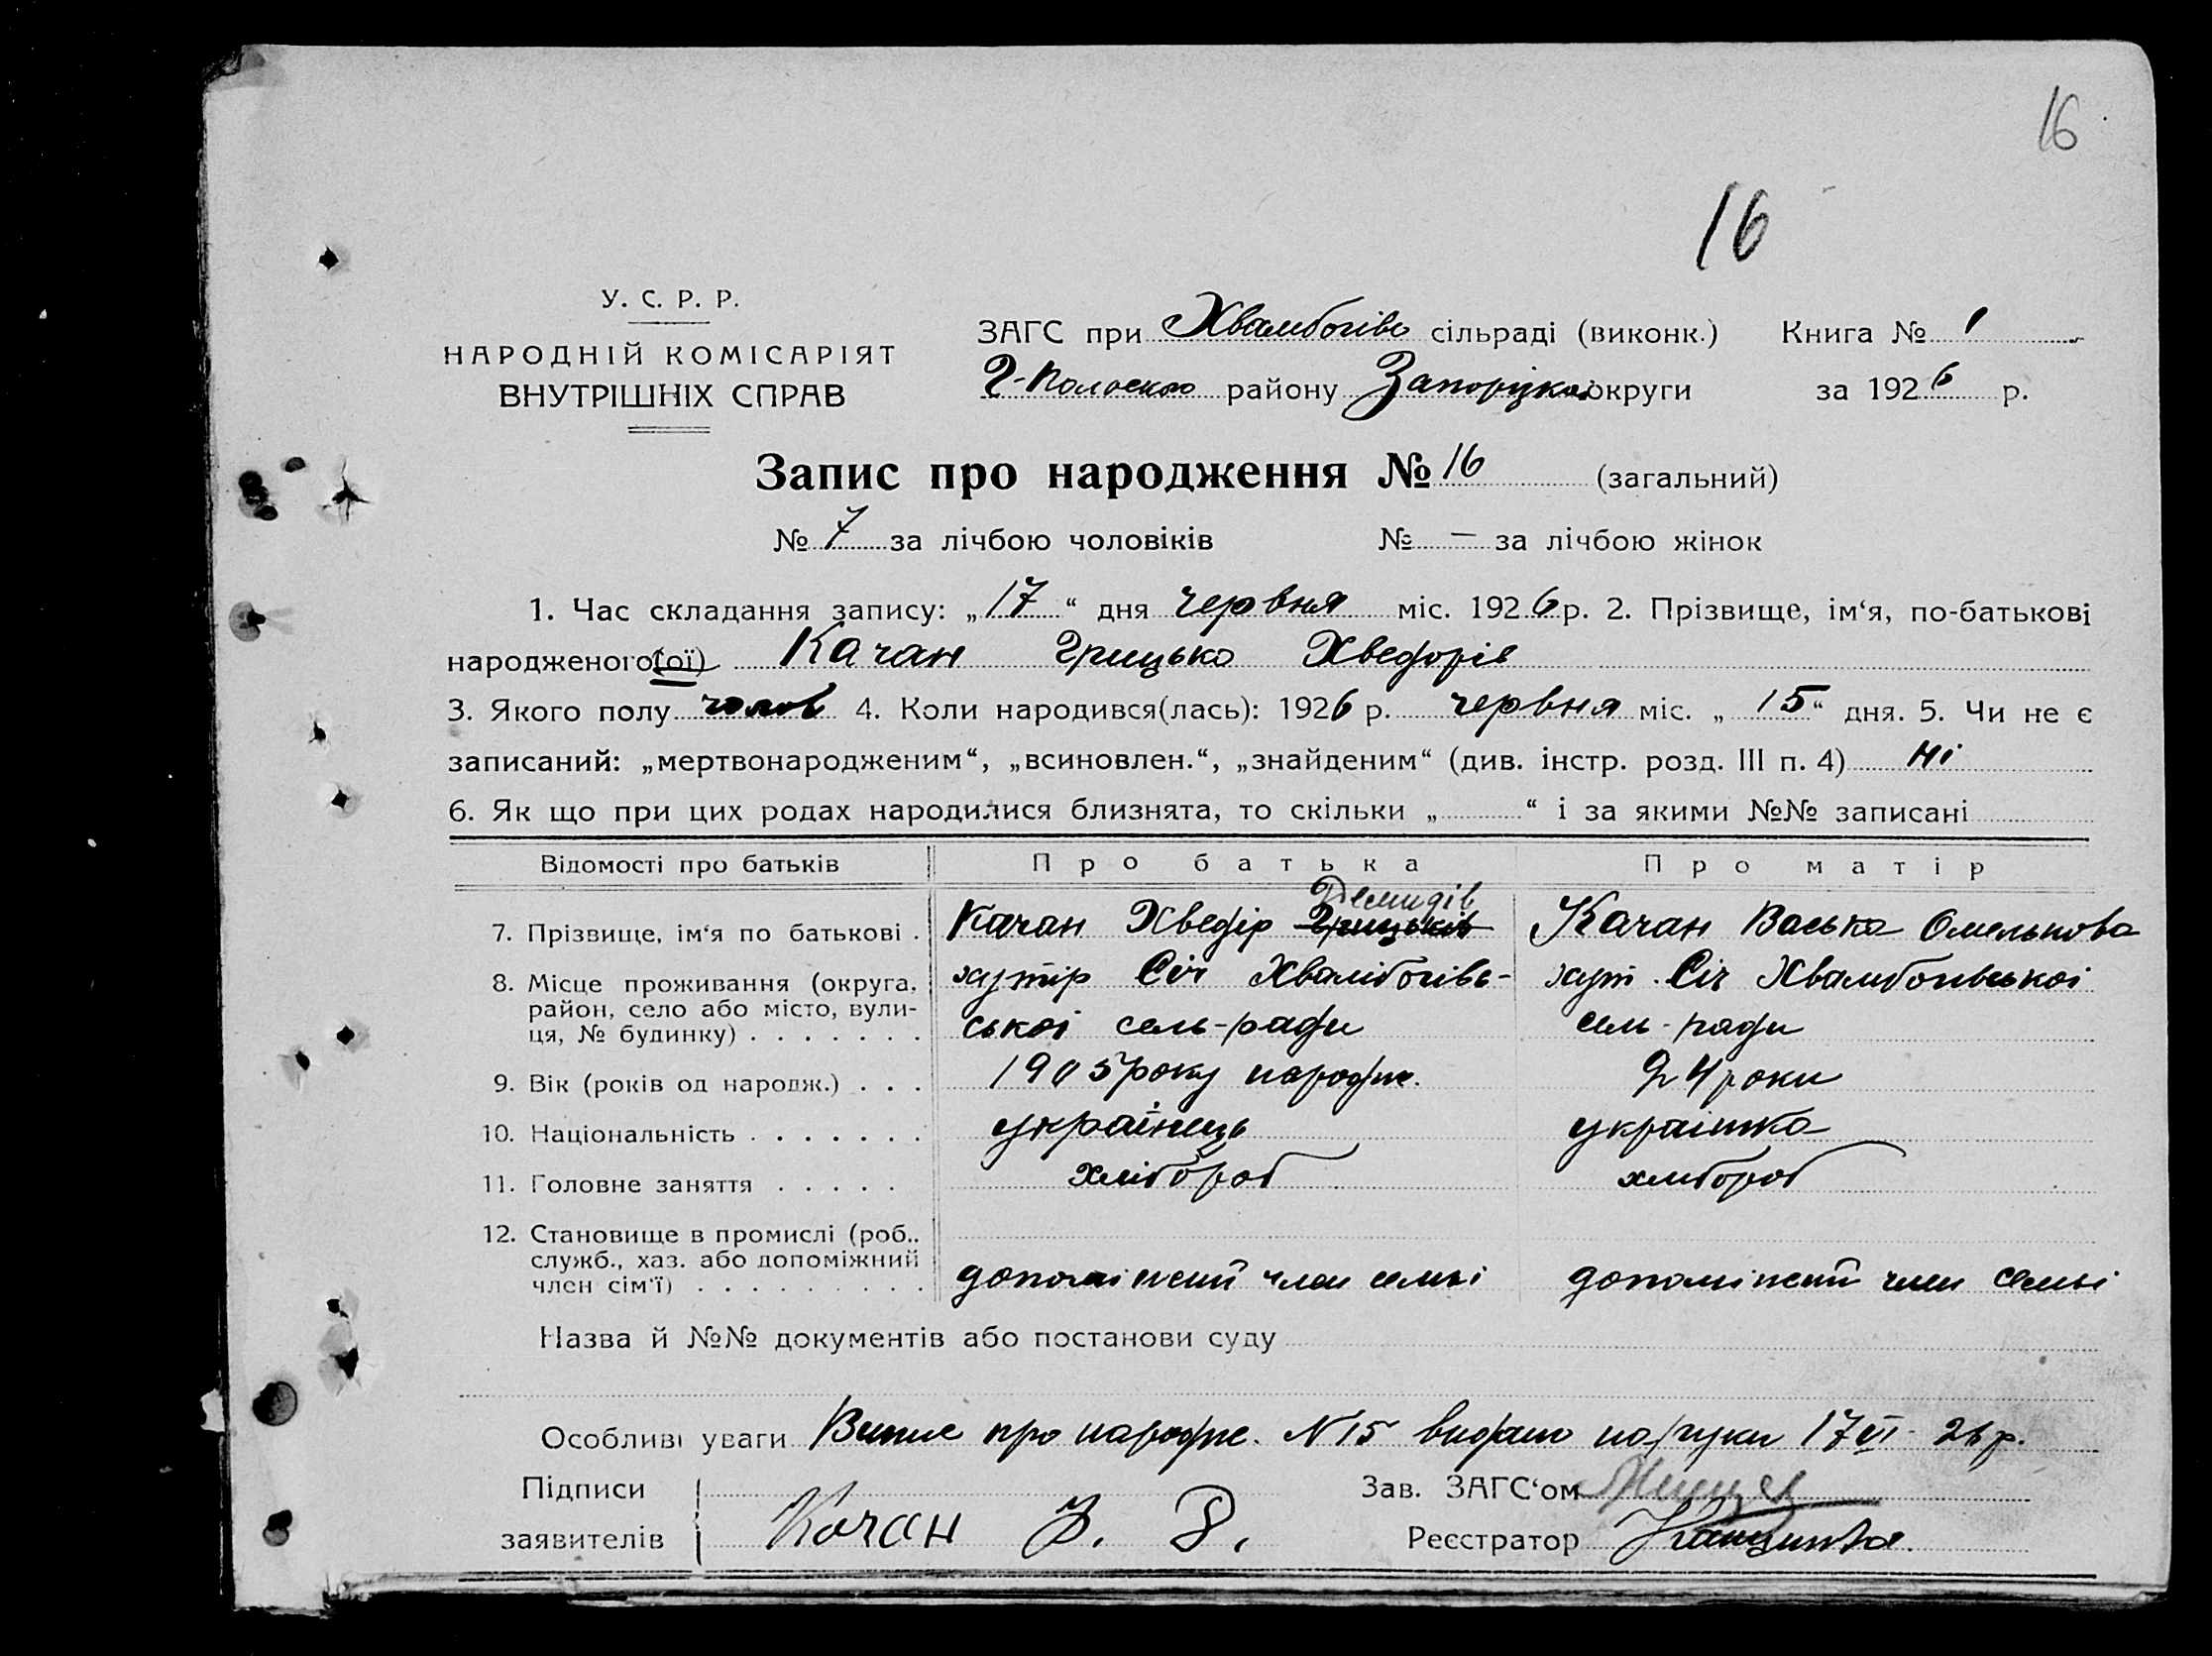 16
16
У. С. Р. Р.
НАРОДНІЙ КОМІСАРІЯТ
ВНУТРІШНІХ СПРАВ
ЗАГС при Хвалибогівс сільраді (виконк.) Книга № 1
Г-Полоского району Запоріцкої округи за 1926 р.
Запис про народження № 16 (загальний)
№ 7 за лічбою чоловіків № — за лічбою жінок
1. Час складання запису: „17“ дня червня міс. 1926 р. 2. Прізвище, ім‘я, по-батькові
народженого(ої) Качан Грицько Хведорів
3. Якого полу чолов 4. Коли народився(лась): 1926 р. червня міс. „15“ дня. 5. Чи не є
записаний: „мертвонародженим“, „всиновлен.“, „знайденим“ (див. інстр. розд. III п. 4) ні
6. Як що при цих родах народилися близнята, то скільки „ “ і за якими №№ записані
Відомості про батьків Про батька Про матір
Демидів
7. Прізвище, ім‘я по батькові . Качан Хведір Грицьків Качан Васька Омелькова
8. Місце проживання (округа, хутір Січ Хвалібогівсь- хут. Січ Хвалибогівської
район, село або місто, вули- ської сель-ради сель-ради
ця, № будинку) . . . . . . .
9. Вік (років од народж.) . . . 1905 року народж. 24 роки
10. Національність . . . . . . . українець українка
11. Головне заняття . . . . . хлібороб хлибороб
12. Становище в промислі (роб..
служб., хаз. або допоміжний
член сім‘ї) . . . . . . . . . допоміжний член семьї допоміжний член семьї
Назва й №№ документів або постанови суду
Особливі уваги Випис про народже. N 15 видано на руки 17 VI 26 р.
Підписи Зав. ЗАГС‘ом
заявителів Качан Реєстратор